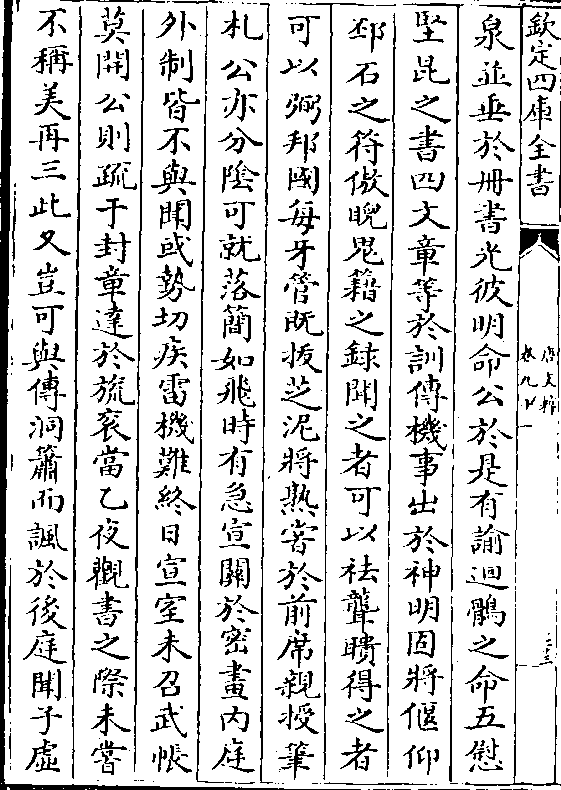 欽定四庫全書
唐文粹
泉並垂於冊書光彼明命公於是有諭迴鶻之命五慰
堅昆之書四文章等於訓傳機事出於神明固將偃仰
邳石之符傲睨鬼籍之録聞之者可以祛聾聵得之者
可以弼邦國每牙管既拔芝泥將熟嘗於前席親授筆
札公亦分陰可就落簡如飛時有急宣關於密畫內庭
外制皆不與聞或勢切疾雷機難終日宣室未召武帳
莫開公則疏于封章達於旒衮當乙夜觀書之際未嘗
不稱美再三此又豈可與傳洞簫而諷於後庭聞子虛